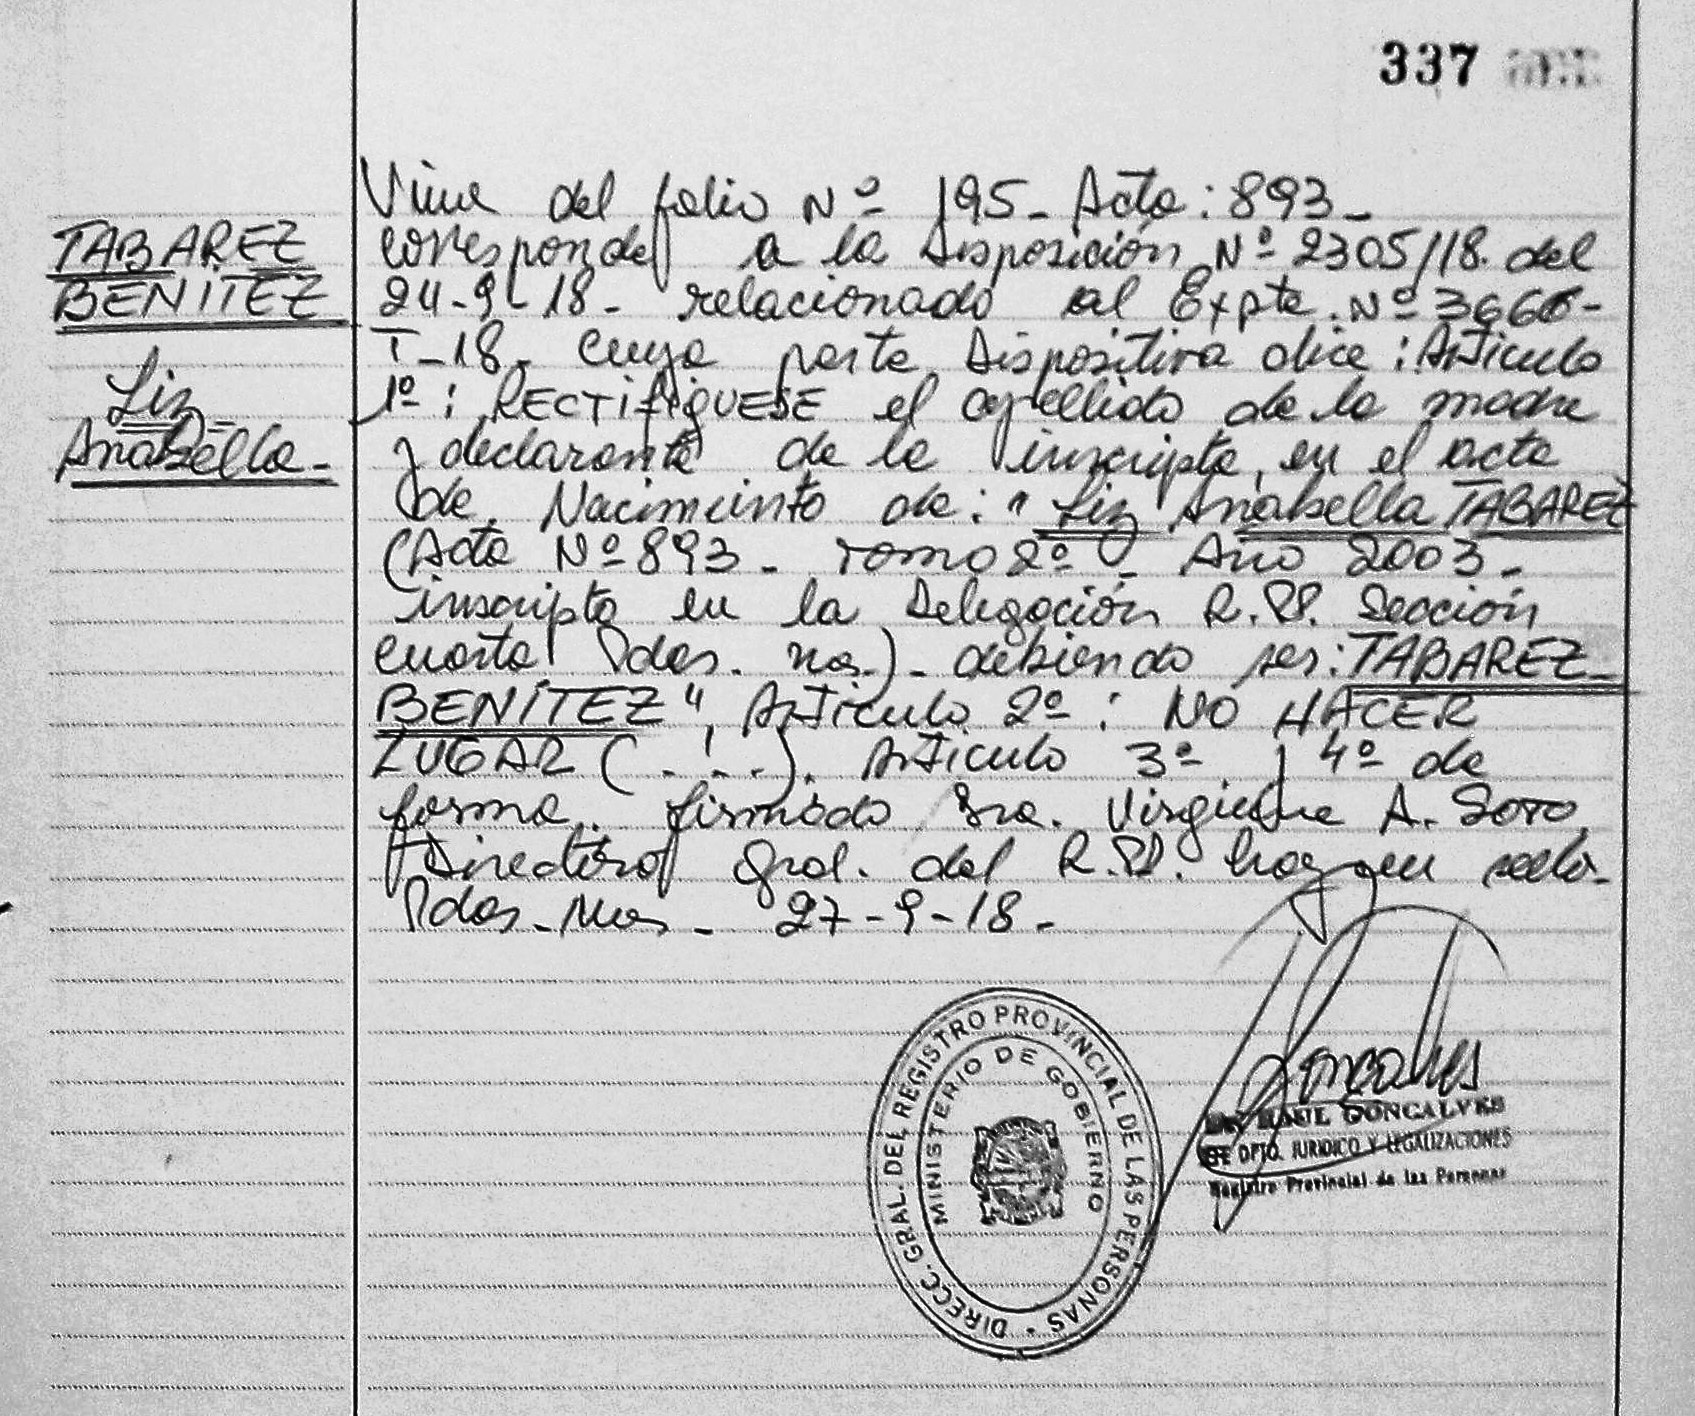 337
TABAREZ
BENITEZ
Liz
Anabella.-
Viene del folio Nº 195- Acta: 893-
corresponde a la Disposición Nº 2305/18. del
24-9-18- relacionado al Expte. Nº 3666-
T-18- cuya parte Dispositiva dice: Artículo
1º: RECTIFIQUESE el apellido de la madre
y declarante de la inscripta, en el acta
de Nacimiento de: "Liz Anabella TABAREZ
(Acta Nº 893- Tomo 2º - Año 2003-
inscripta en la Delegación R.P.P. Sección
cuarta Pdas. Mnes.)- debiendo ser: TABAREZ
BENÍTEZ", Artículo 2º: NO HACER
LUGAR (...). Artículo 3º y 4º de
forma. firmado Sra. A. SOTO
Directora Gral. del R.P.P. hay un sello.
Pdas-Mnes- 27-9-18-
DIRECC. GRAL. DEL REGISTRO PROVINCIAL DE LAS PERSONAS
MINISTERIO DE GOBIERNO
Goncalves
RAUL GONCALVES
DPTO. JURIDICO Y LEGALIZACIONES
Registro Provincial de las Personas